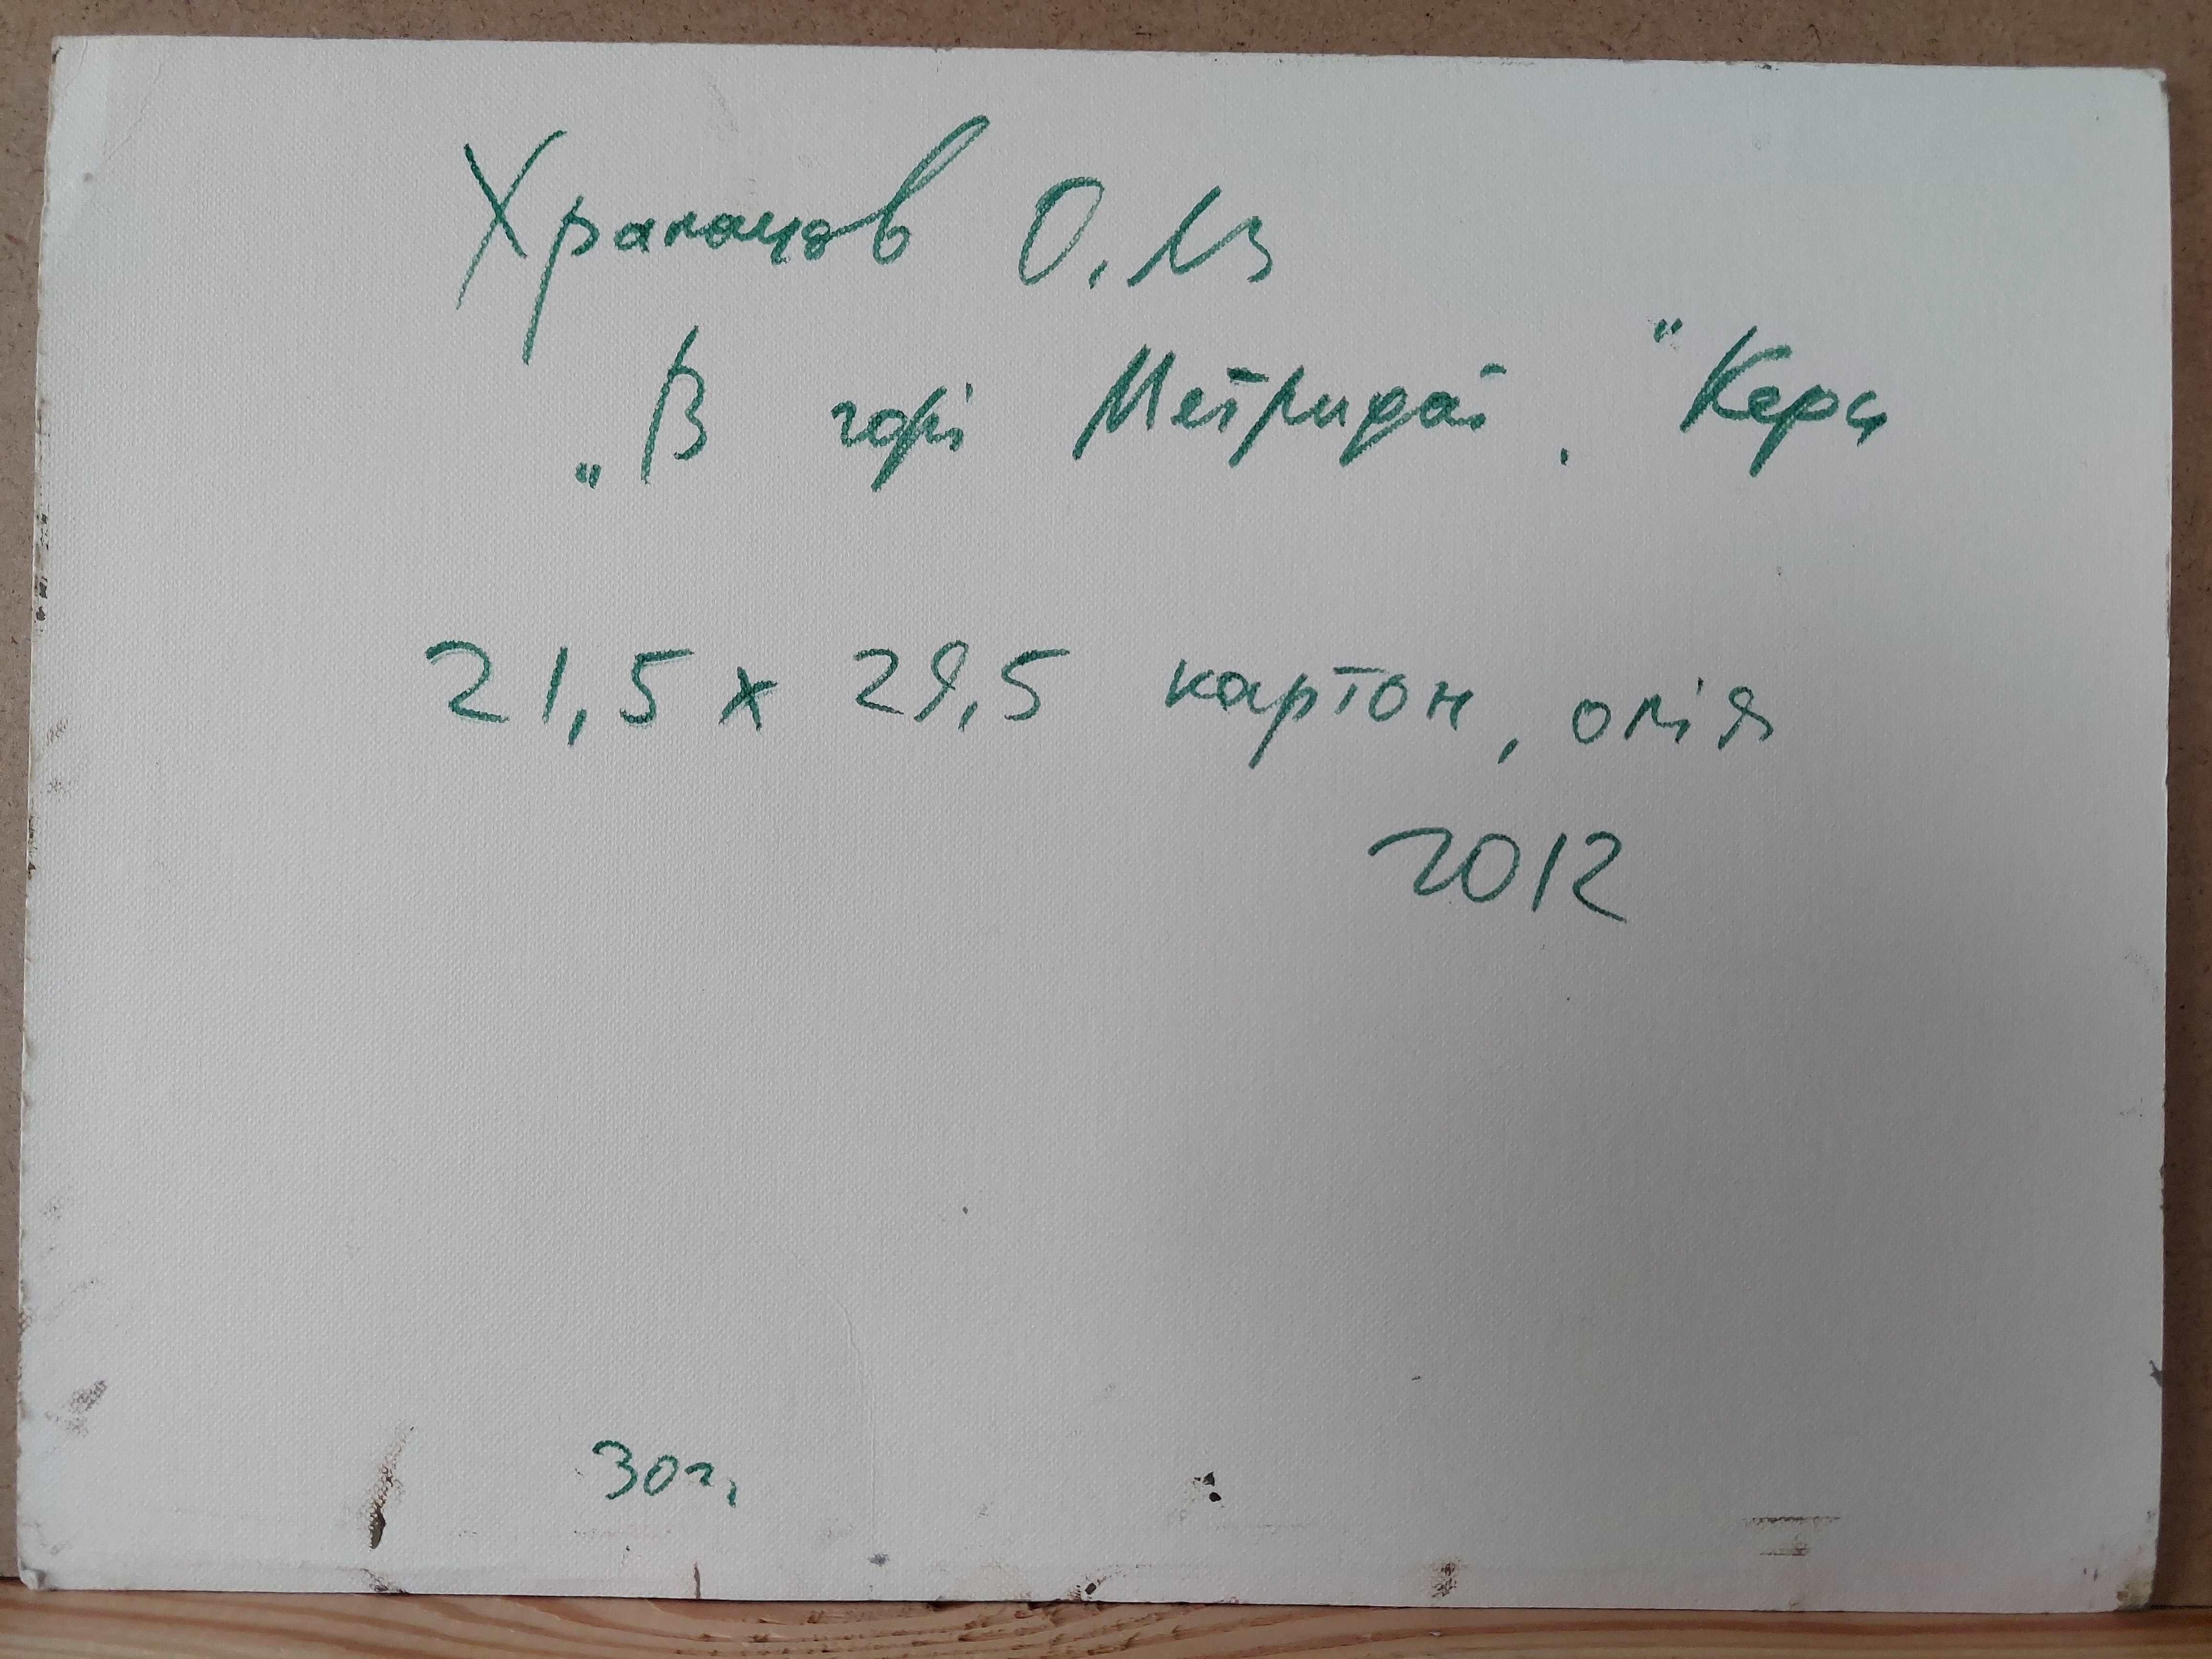 Храпачов О. М
„В горі Метридат." Керч
21,5 x 29,5 картон, олія
2012
30г.